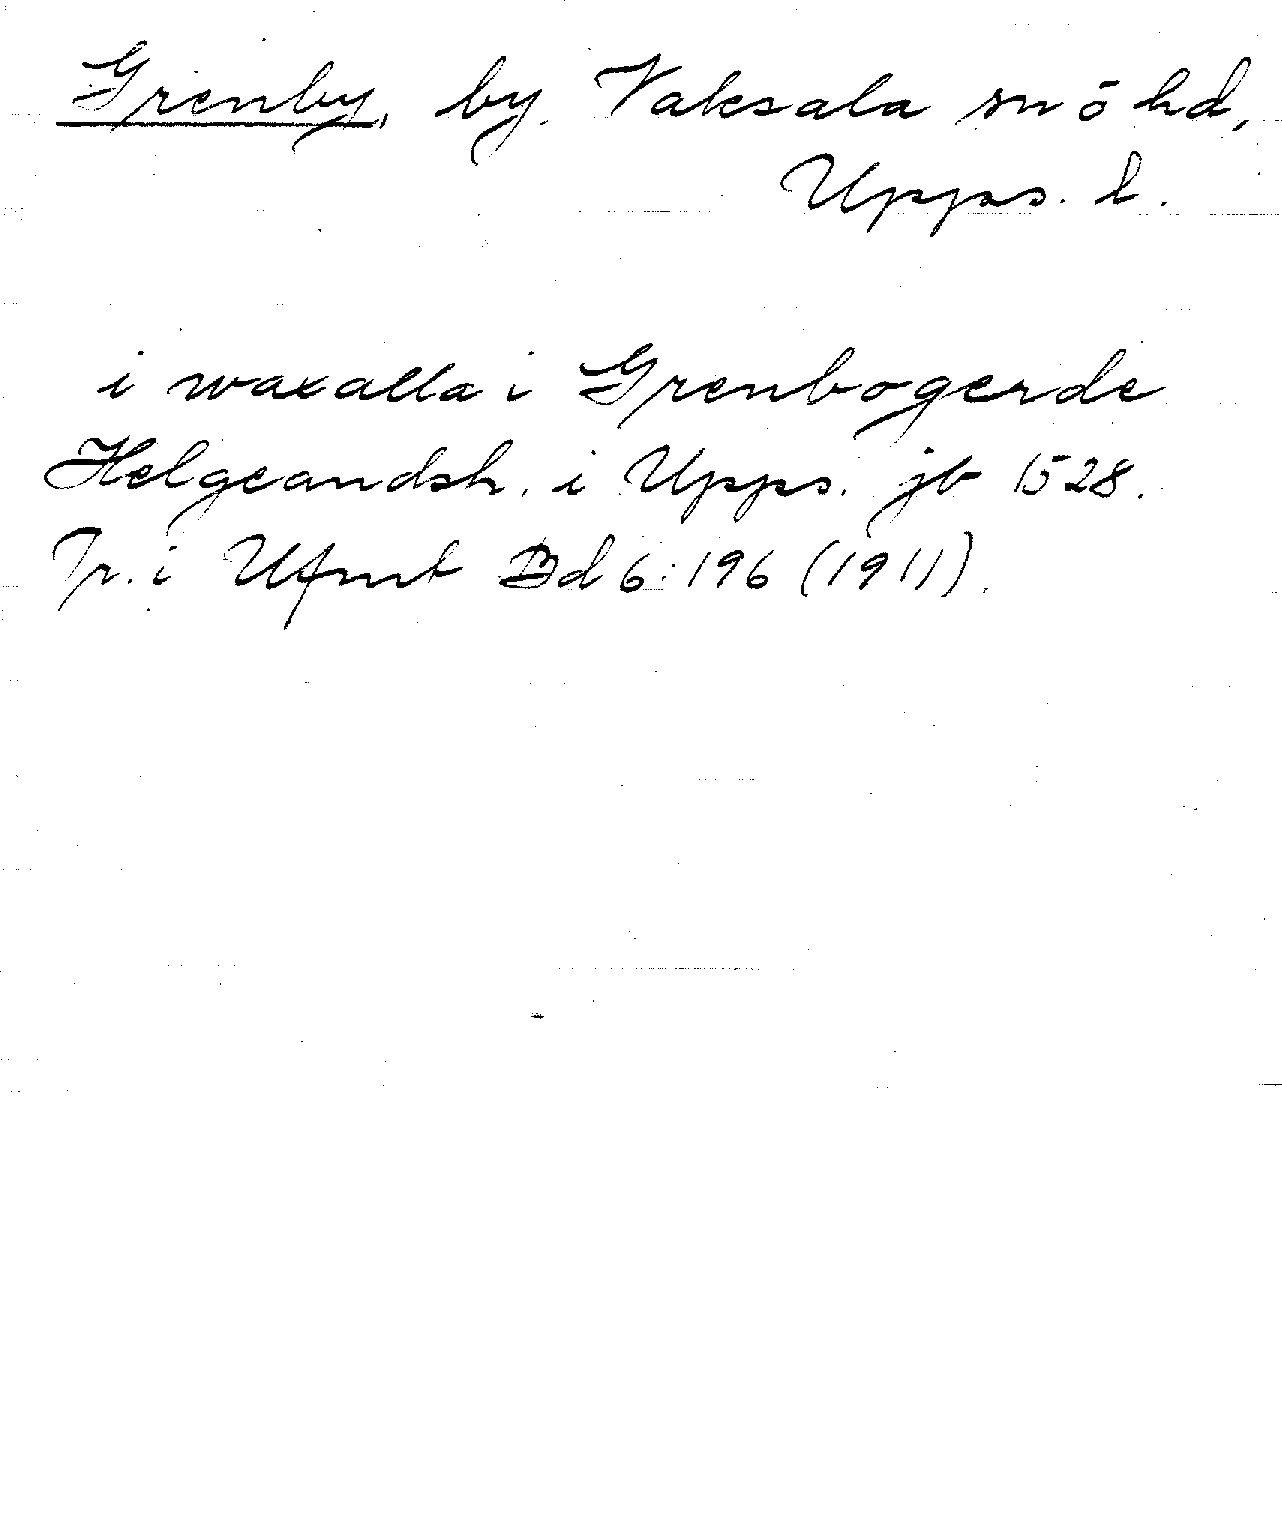 Grenby, by. Vaksala sn o hd,
Upps. l.
i waxalla i Grenbogerde
Helgeandsh. i Upps. jb 1528.
Tr. i Ufmt Bd 6:196 (1911).